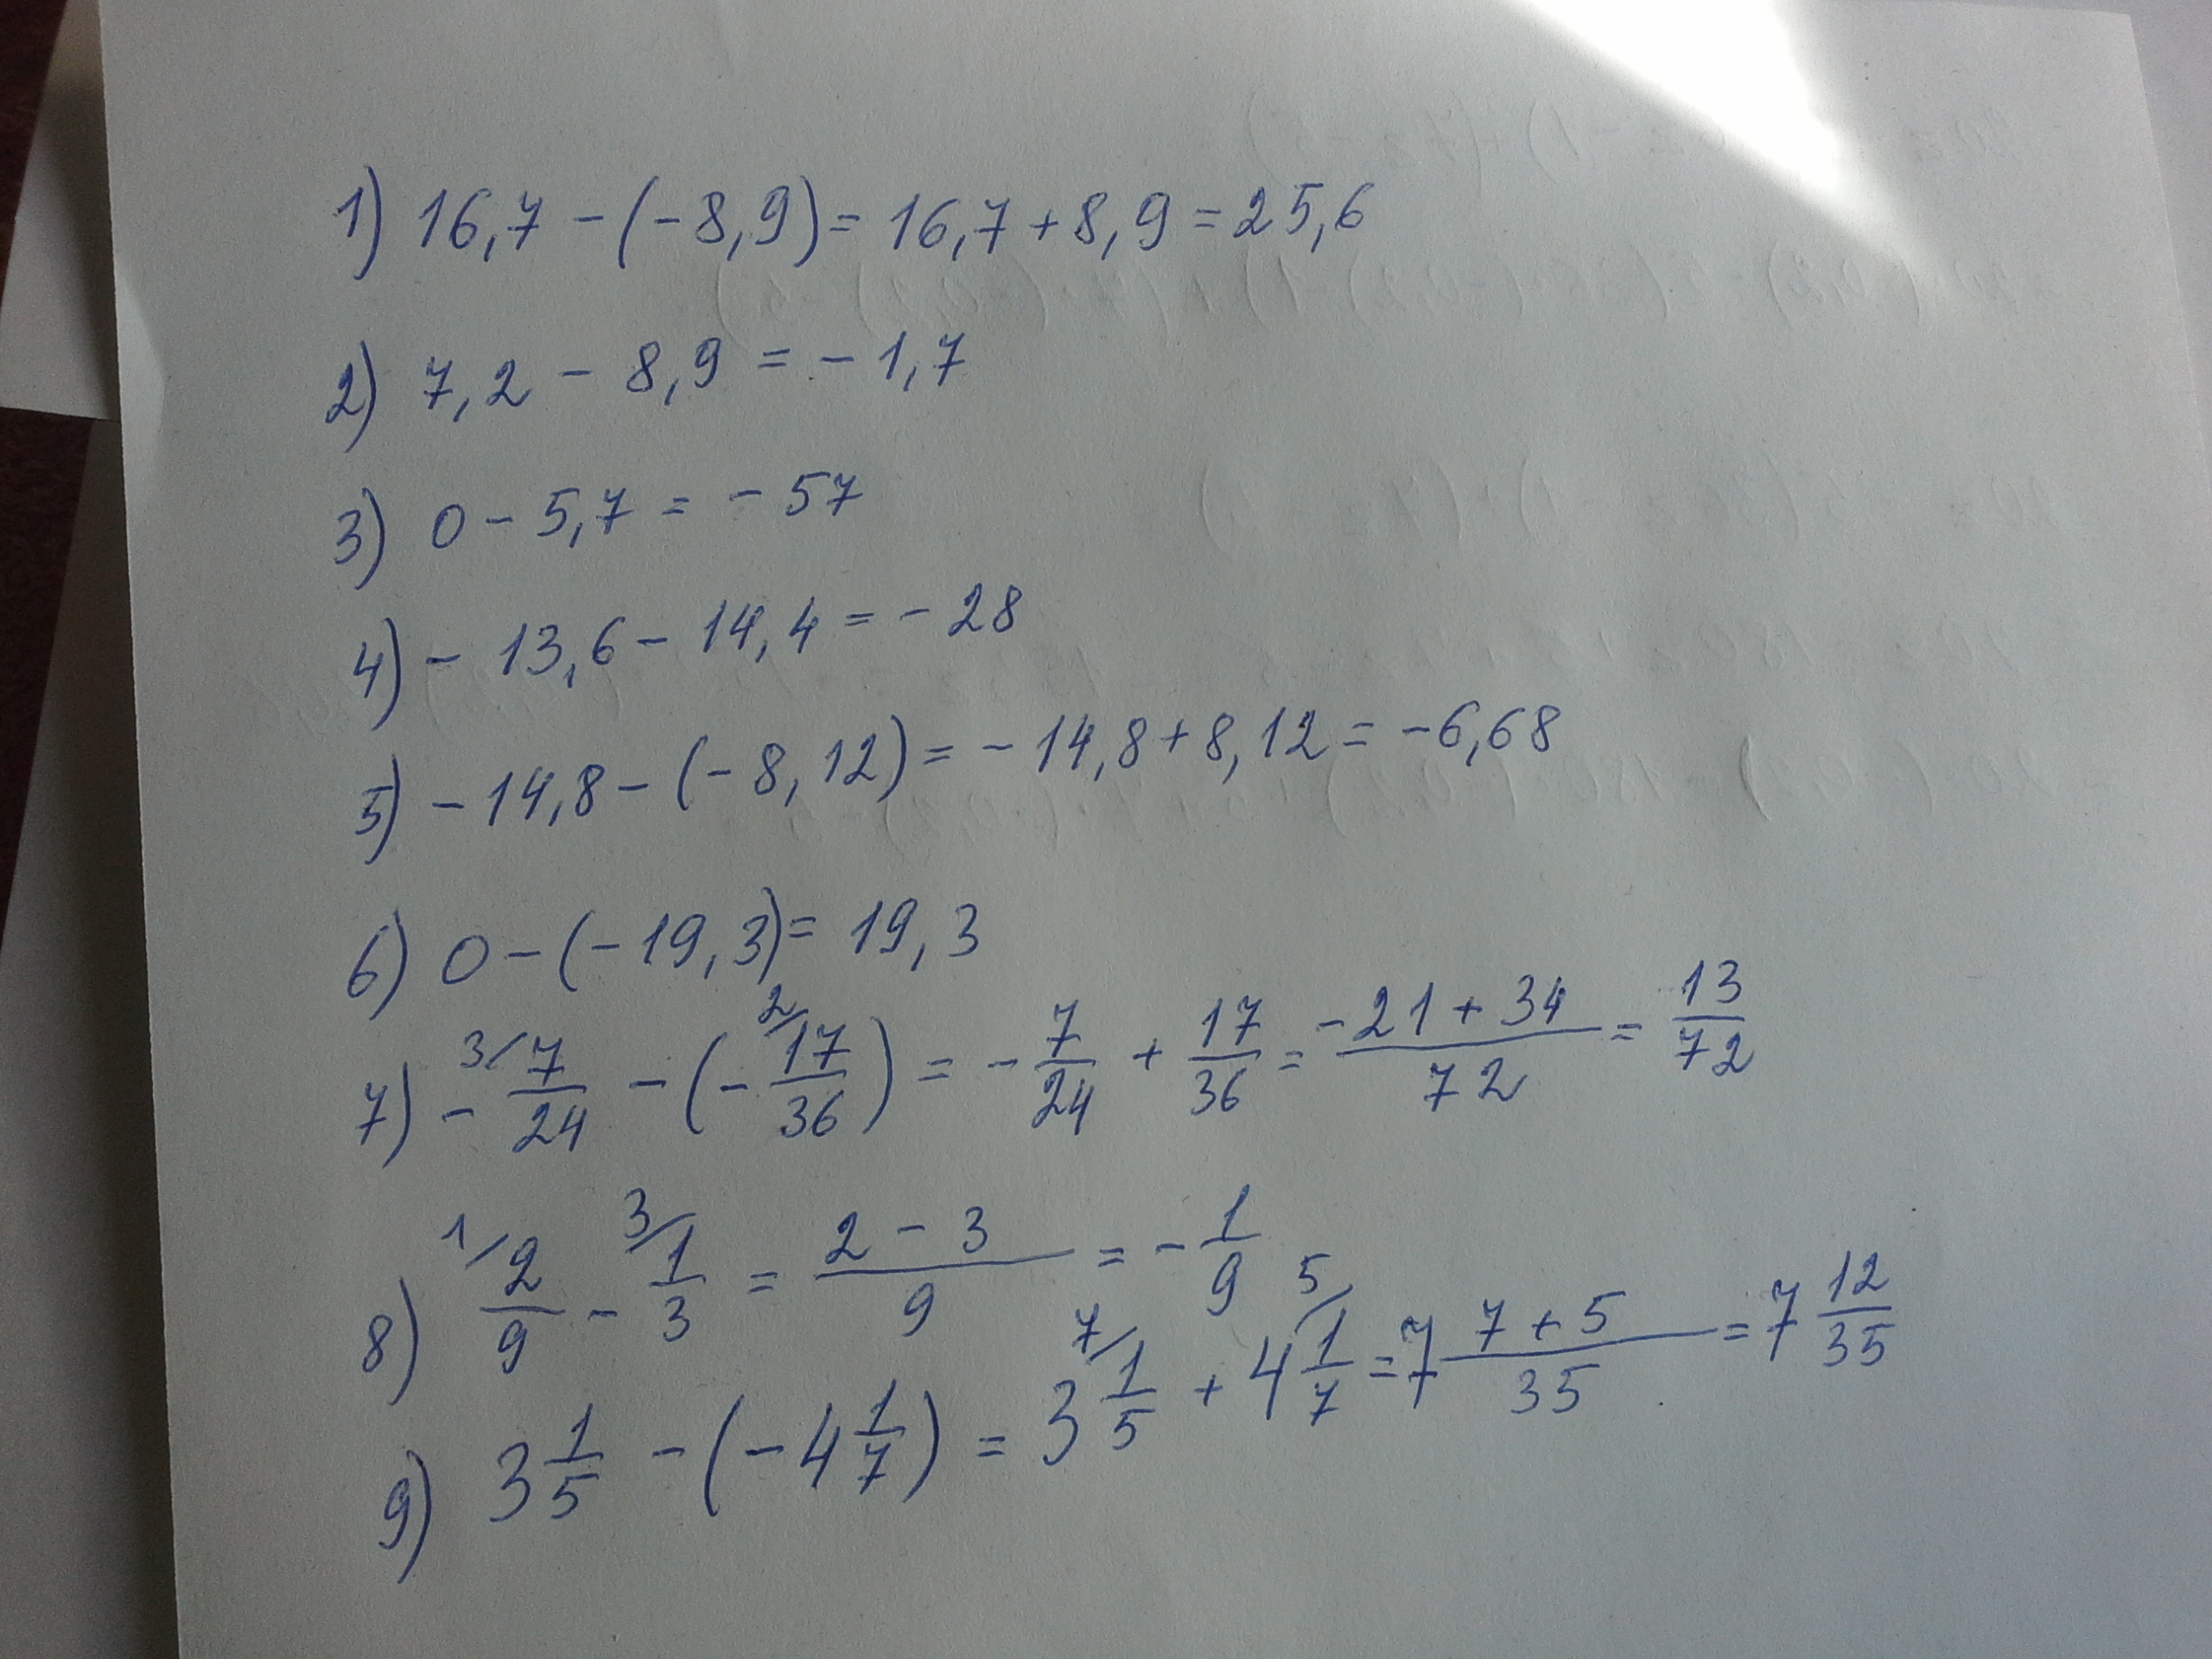 1) 16,7 - (-8,9) = 16,7 + 8,9 = 25,6
2) 7,2 - 8,9 = -1,7
3) 0 - 5,7 = -57
4) - 13,6 - 14,4 = -28
5) -14,8 - (-8,12) = -14,8 + 8,12 = -6,68
6) 0 - (-19,3) = 19,3
7) - 3/ 7/24 - (- 2/ 17/36) = - 7/24 + 17/36 = (-21 + 34)/72 = 13/72
8) 1/ 2/9 - 3/ 1/3 = (2 - 3)/9 = - 1/9
9) 3 1/5 - (-4 1/7) = 3 7/ 1/5 + 4 5/ 1/7 = 7 (7 + 5)/35 = 7 12/35